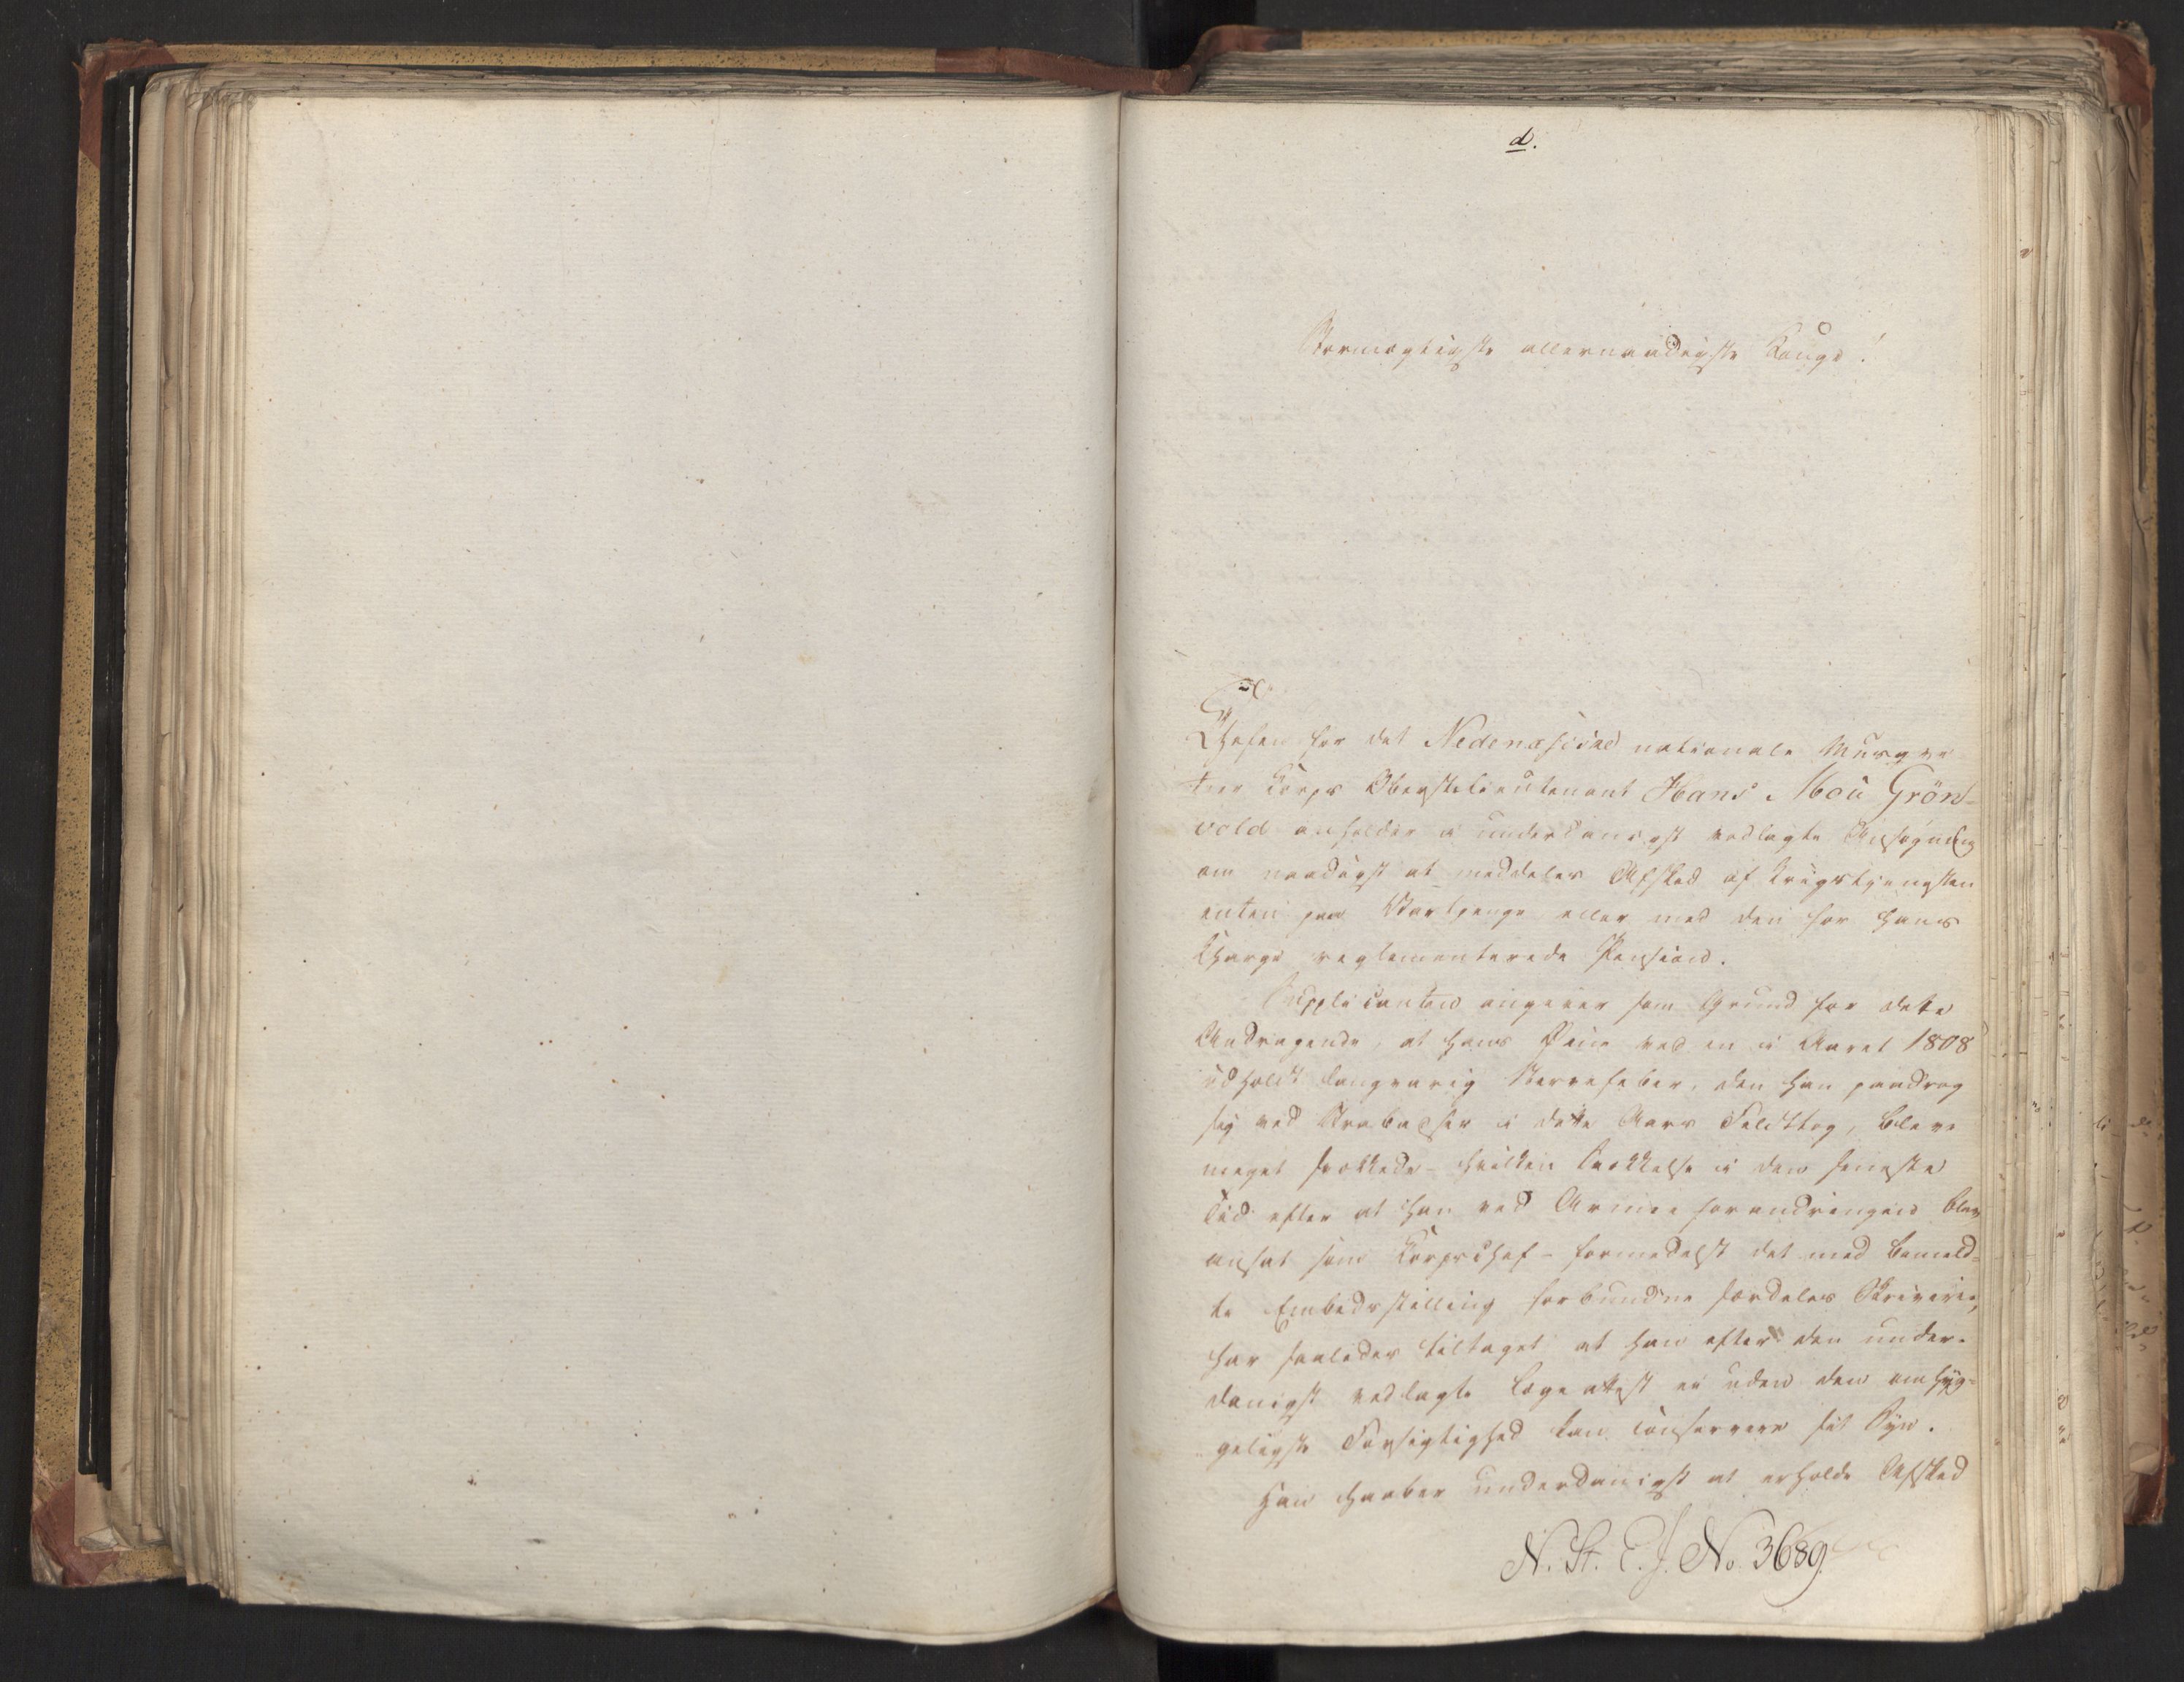 d.
Stormægtigste allernaadigste Konge!
Chefen for det Nedenæsiske nationale Musque
teer Korps Oberstelieutenant Hans Mou Grön-
vold anholder i underdanigst vedlagte Ansøgning
om naadigst at meddeles Afsked af Krigstjenesten
enten paa Vartpenge eller med den for hans
Charge reglementerede Pension.
Supplicanten angiver som Grund for dette
Andragende, at hans Øine ved en i Aaret 1808
udholdt langvarig Nervefeber, den han paadrog
sig ved Strabadser i dette Aars Feldttog, bleve
meget svækkede - hvilken Svækkelse i den seneste
Tid efter at han ved Armee forandringen blev
ansat som Korpschef - formedelst det med bemeld-
te Embedsstilling forbundne særdeles Skriverie,
har saaledes tiltaget at han efter den under-
danigst vedlagte Lægeattest ei uden den omhyg-
geligste Forsigtighed kan conservere sit Syn.
Han haaber underdanigst at erholde Afsked
N. St. E. J. No. 3689.